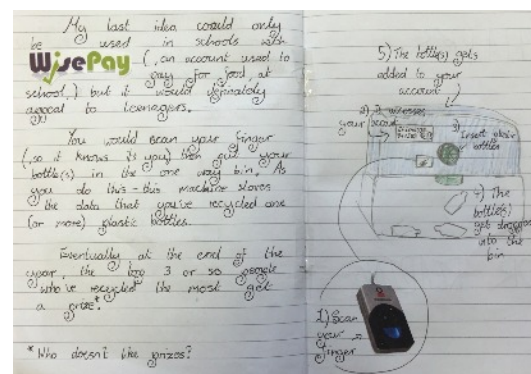 My last idea could only
be used in schools with
WisePay (, an account used to
pay for food at
school,) but it would definately
appeal to teenagers.
You would scan your finger
(, so it knows its you) then put your
bottle(s) in the one way bin. As
you do this - this machine stores
the data that you've recycled one
(or more) plastic bottles.
Eventually at the end of the
year, the top 3 or so people
who've recycled the most get
a prize*.
*Who doesn't like prizes?
5) The bottle(s) gets
added to your
account
2) It
your
3)
Insert
bottles
4) The
bottle(s)
get dropped
into the
bin
1) Scan
your
finger